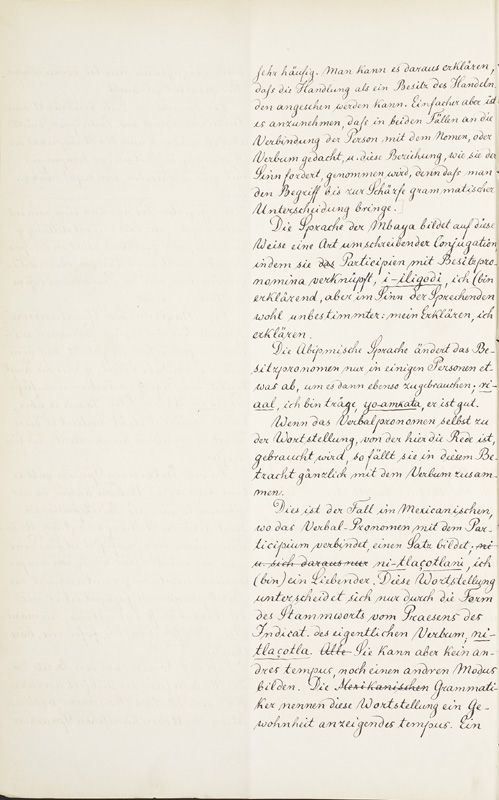 sehr häufig. Man kann es daraus erklären,
daſs die Handlung als ein Besitz des Handeln
den angesehen werden kann. Einfacher aber ist
es anzunehmen, daſs in beiden Fällen an die
Verbindung der Person mit dem Nomen, oder
Verbum gedacht, u. diese Beziehung, wie sie der
Sinn fordert, genommen wird, denn daſs man
den Begriff bis zur Schärfe grammatischer
Unterscheidung bringe.
Die Sprache der Mbaya bildet auf diese
Weise eine Art umschreibender Conjugation
indem sie das Participien mit Besitzpro-
nomina verknüpft, i-iligodi, ich (bin
erklärend, aber im Sinn der Sprechenden
wohl unbestimmter: mein Erklären, ich
erklären.
Die Abipmische Sprache ändert das Be-
sitzpronomen nur in einigen Personen et-
was ab, um es dann ebenso zugebrauchen; ri-
aal, ich bin träge, yo-amkata, er ist gut.
Wenn das Verbalpronomen selbst zu
der Wortstellung, von der hier die Rede ist,
gebraucht wird, so fällt sie in diesem Be-
tracht gänzlich mit dem Verbum zusam-
men.
Dies ist der Fall im Mexicanischen,
wo das Verbal-Pronomen mit dem Par-
ticipium verbindet, einen Satz bildet, ni
u. sich daraus nur ni-tlaçotlani, ich
(bin) ein Liebender. Diese Wortstellung
unterscheidet sich nur durch die Form
des Stammworts vom Praesens des
Indicat. des eigentlichen Verbum, ni-
tlaçotla. Alle Sie kann aber kein an-
dres tempus, noch einen andren Modus
bilden. Die Mexikanischen Grammati-
ker nennen diese Wortstellung ein Ge-
wohnheit anzeigendes tempus. Ein